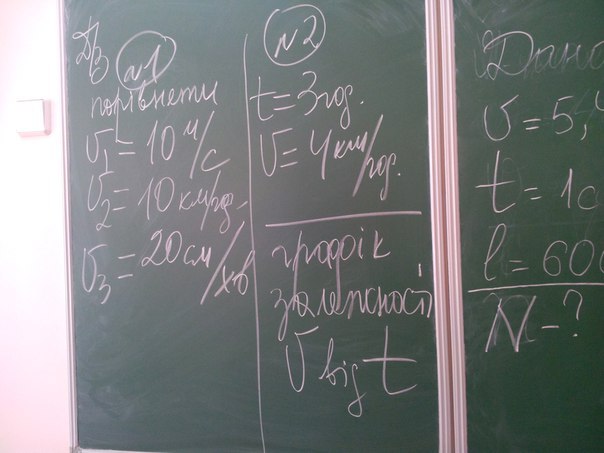 Д/З №1
порівняти
υ₁ = 10 м/с
υ₂ = 10 км/год.
υ₃ = 20 см/хв
№2
t = 3 год.
υ = 4 км/год.
графік
залежності
υ від t
Дано
υ = 5,4
t = 1
l = 600
N - ?